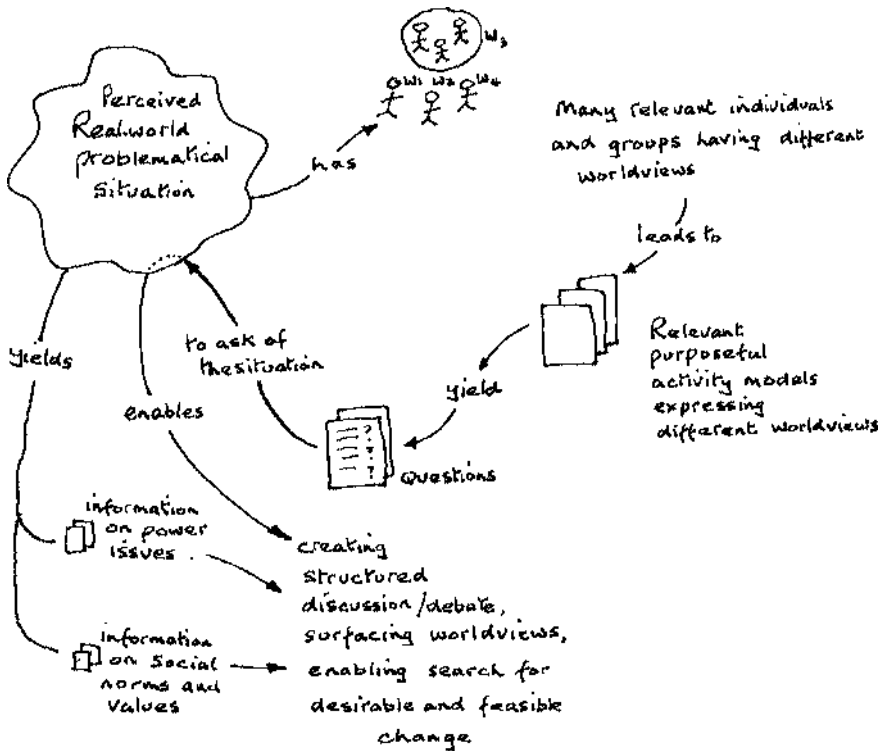 Perceived
Real-world
problematical
situation
has
W3
W1 W2 W4
Many relevant individuals
and groups having different
worldviews
leads to
Relevant
purposeful
activity models
expressing
different worldviews
yield
Questions
? 
?
?
to ask of
the situation
enables
yields
information
on power
issues
information
on social
norms and
values
creating
structured
discussion/debate,
surfacing worldviews,
enabling search for
desirable and feasible
change